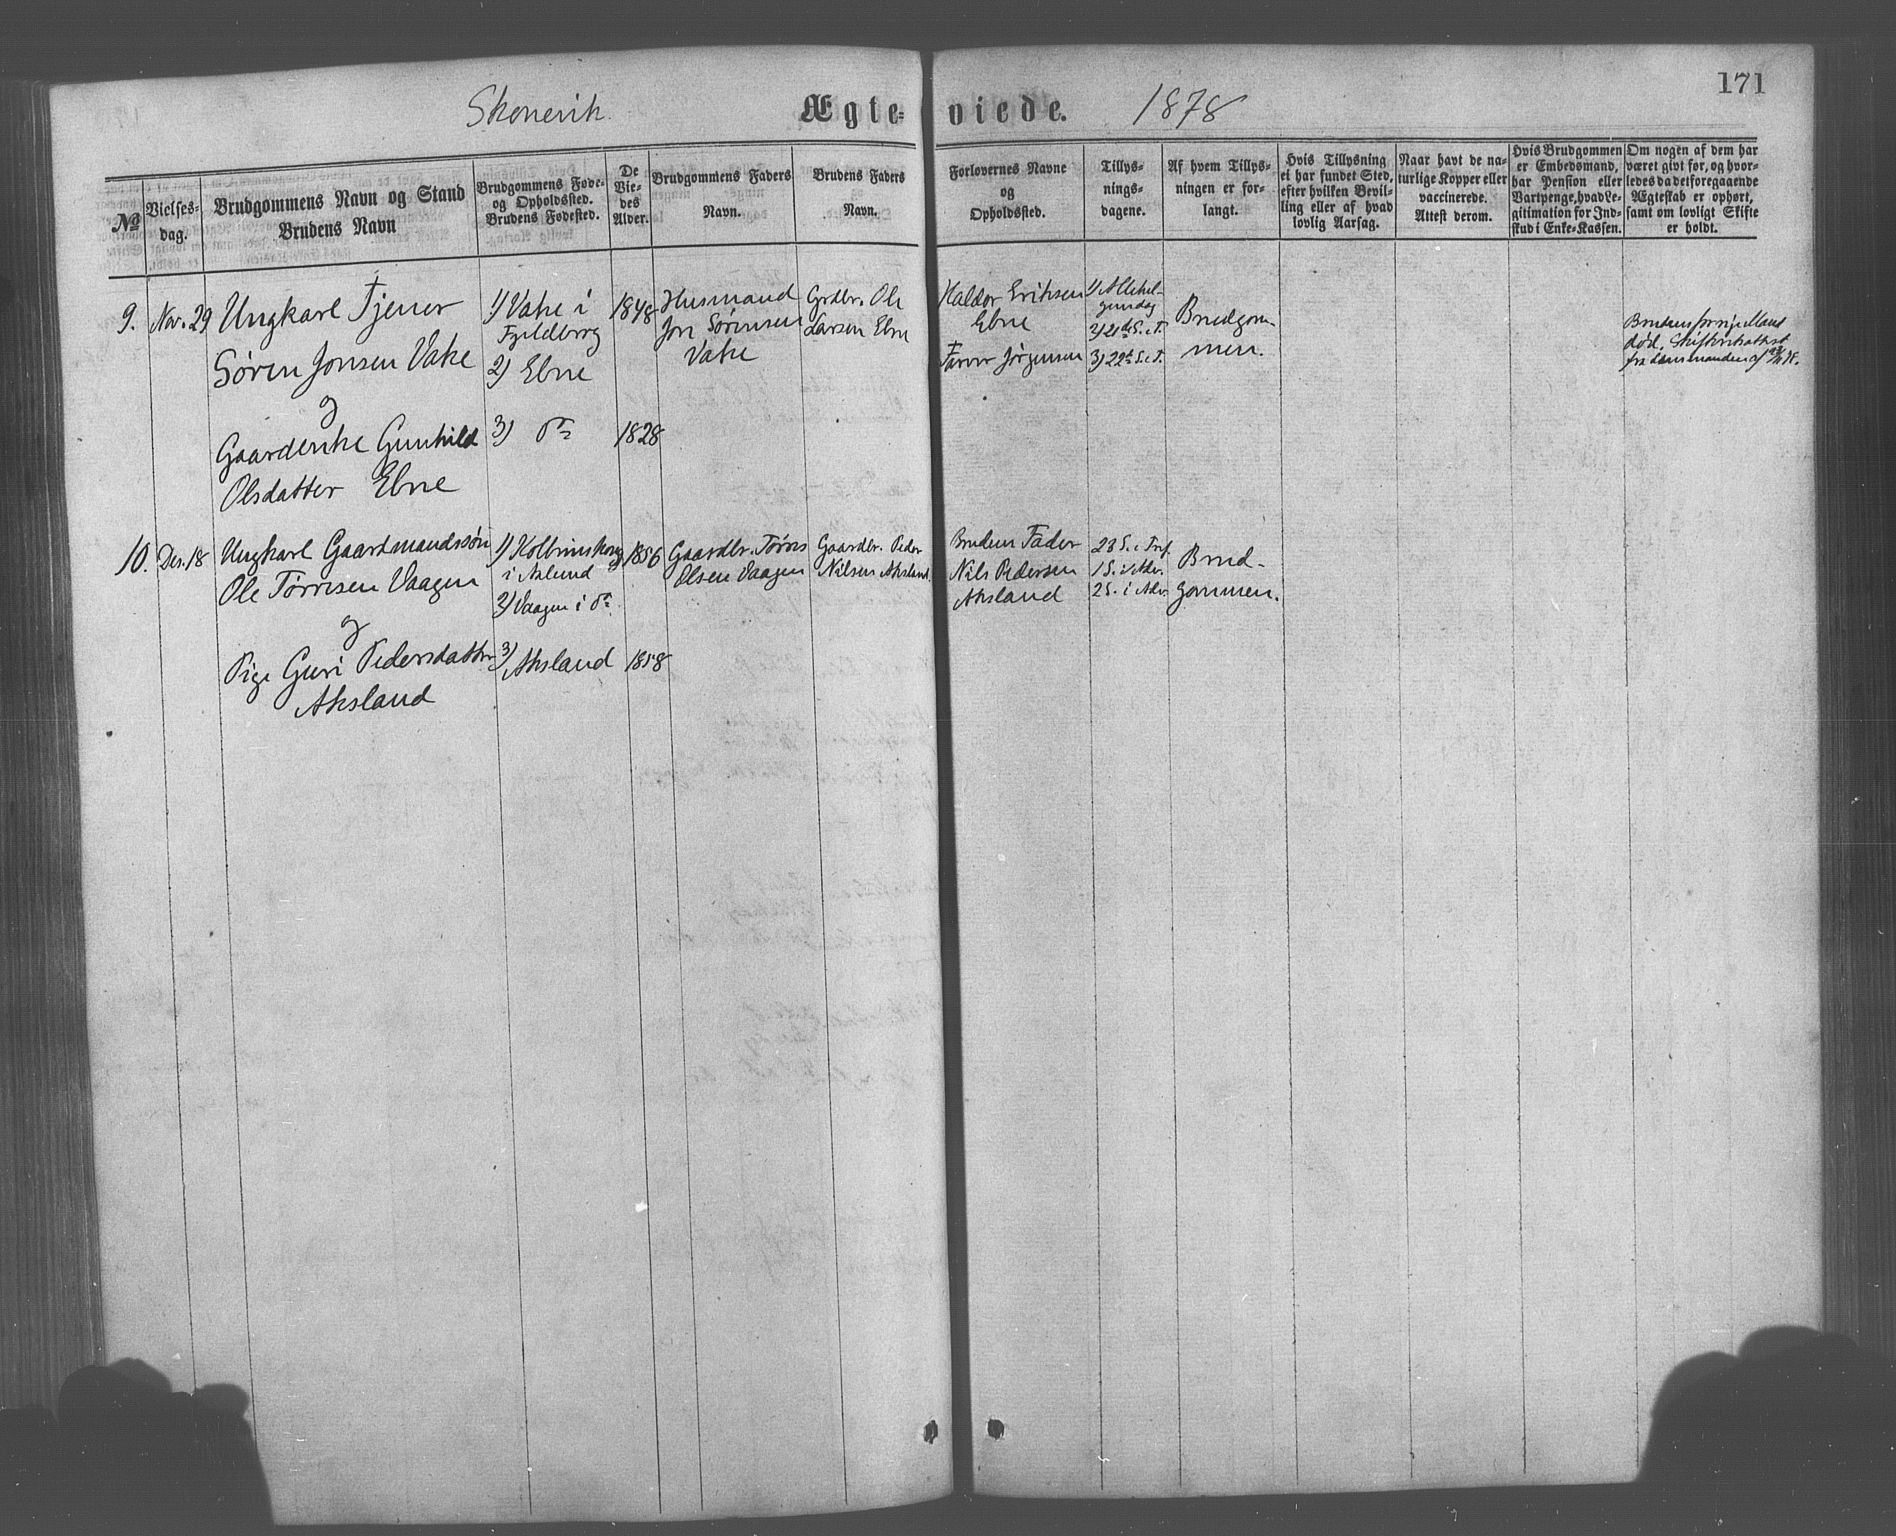 171
Skonevik Ægteviede. 1878
№
Vielses-
dag.
Brudgommens Navn og Stand
Brudens Navn
Brudgommens Føde-
og Opholdssted.
Brudens Fødested.
De
Vie-
des
Alder.
Brudgommens Faders
Navn.
Brudens Faders
Navn.
Forlovernes Navne
og
Opholdssted.
Tillys-
nings-
dagene.
Af hvem Tillys-
ningen er for-
langt.
Hvis Tillysning
ei har fundet Sted,
efter hvilken Bevil-
ling eller af hvad
lovlig Aarsag.
Naar havt de na-
turlige Kopper eller
vaccinerede.
Attest derom.
Hvis Brudgommen
er Embedsmand,
har Pension eller
Vartpenge, hvad Le-
gitimation for Ind-
skud i Enke-Kassen.
Om nogen af dem har
været givt før, og hvor-
ledes da det foregaaende
Ægteskab er ophørt,
samt om lovligt Skifte
er holdt.
9. Nov. 29
Ungkarl Tjener
Søren Jonsen Vake
og
Gaardenke Gunhild
Olsdatter Ebne
1) Vake i
2) Ebne
3) do
1848
1828
Husmand
Jon Sørensen
Vake
Grdbr. Ole
Larsen Ebne
Haldor Eriksen
Ebne
Jørgensen
1) Allehel-
gensdag
2) 21de S. e. T.
3) 22de S. e. T.
Brudgom-
men.
Brudens forrige Mand
død. Skifteattest
fra Lensmanden af
10. Des. 18
Ungkarl Gaardmandssøn
Ole Tørresen Vaagen
og
Pige Guri Pedersdatter
Aksland
1)
i
2) Vaagen i do
3) Aksland
1856
1858
Gaardbr. Tørres
Olsen Vaagen
Gaardbr. Peder
Nilsen Aksland.
Brudens Fader
Nils Pedersen
Aksland
23 S. e. Tref.
1 S. i Adv.
2 S. i Adv.
Brud-
gommen.